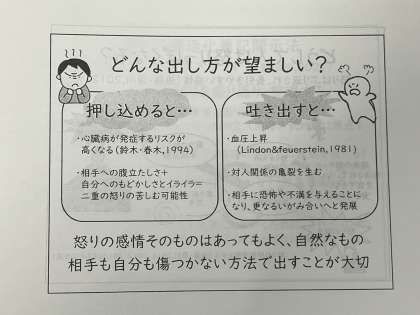 どんな出し方が望ましい?
押し込めると…
・心臓病が発症するリスクが
高くなる(鈴木・春木,1994)
・相手への腹立たしさ+
自分へのもどかしさとイライラ=
二重の怒りの苦しむ可能性
吐き出すと…
・血圧上昇
(Lindon&feuerstein,1981)
・対人関係の亀裂を生む
・相手に恐怖や不満を与えることに
なり、更なるいがみ合いへと発展
怒りの感情そのものはあってもよく、自然なもの
相手も自分も傷つかない方法で出すことが大切